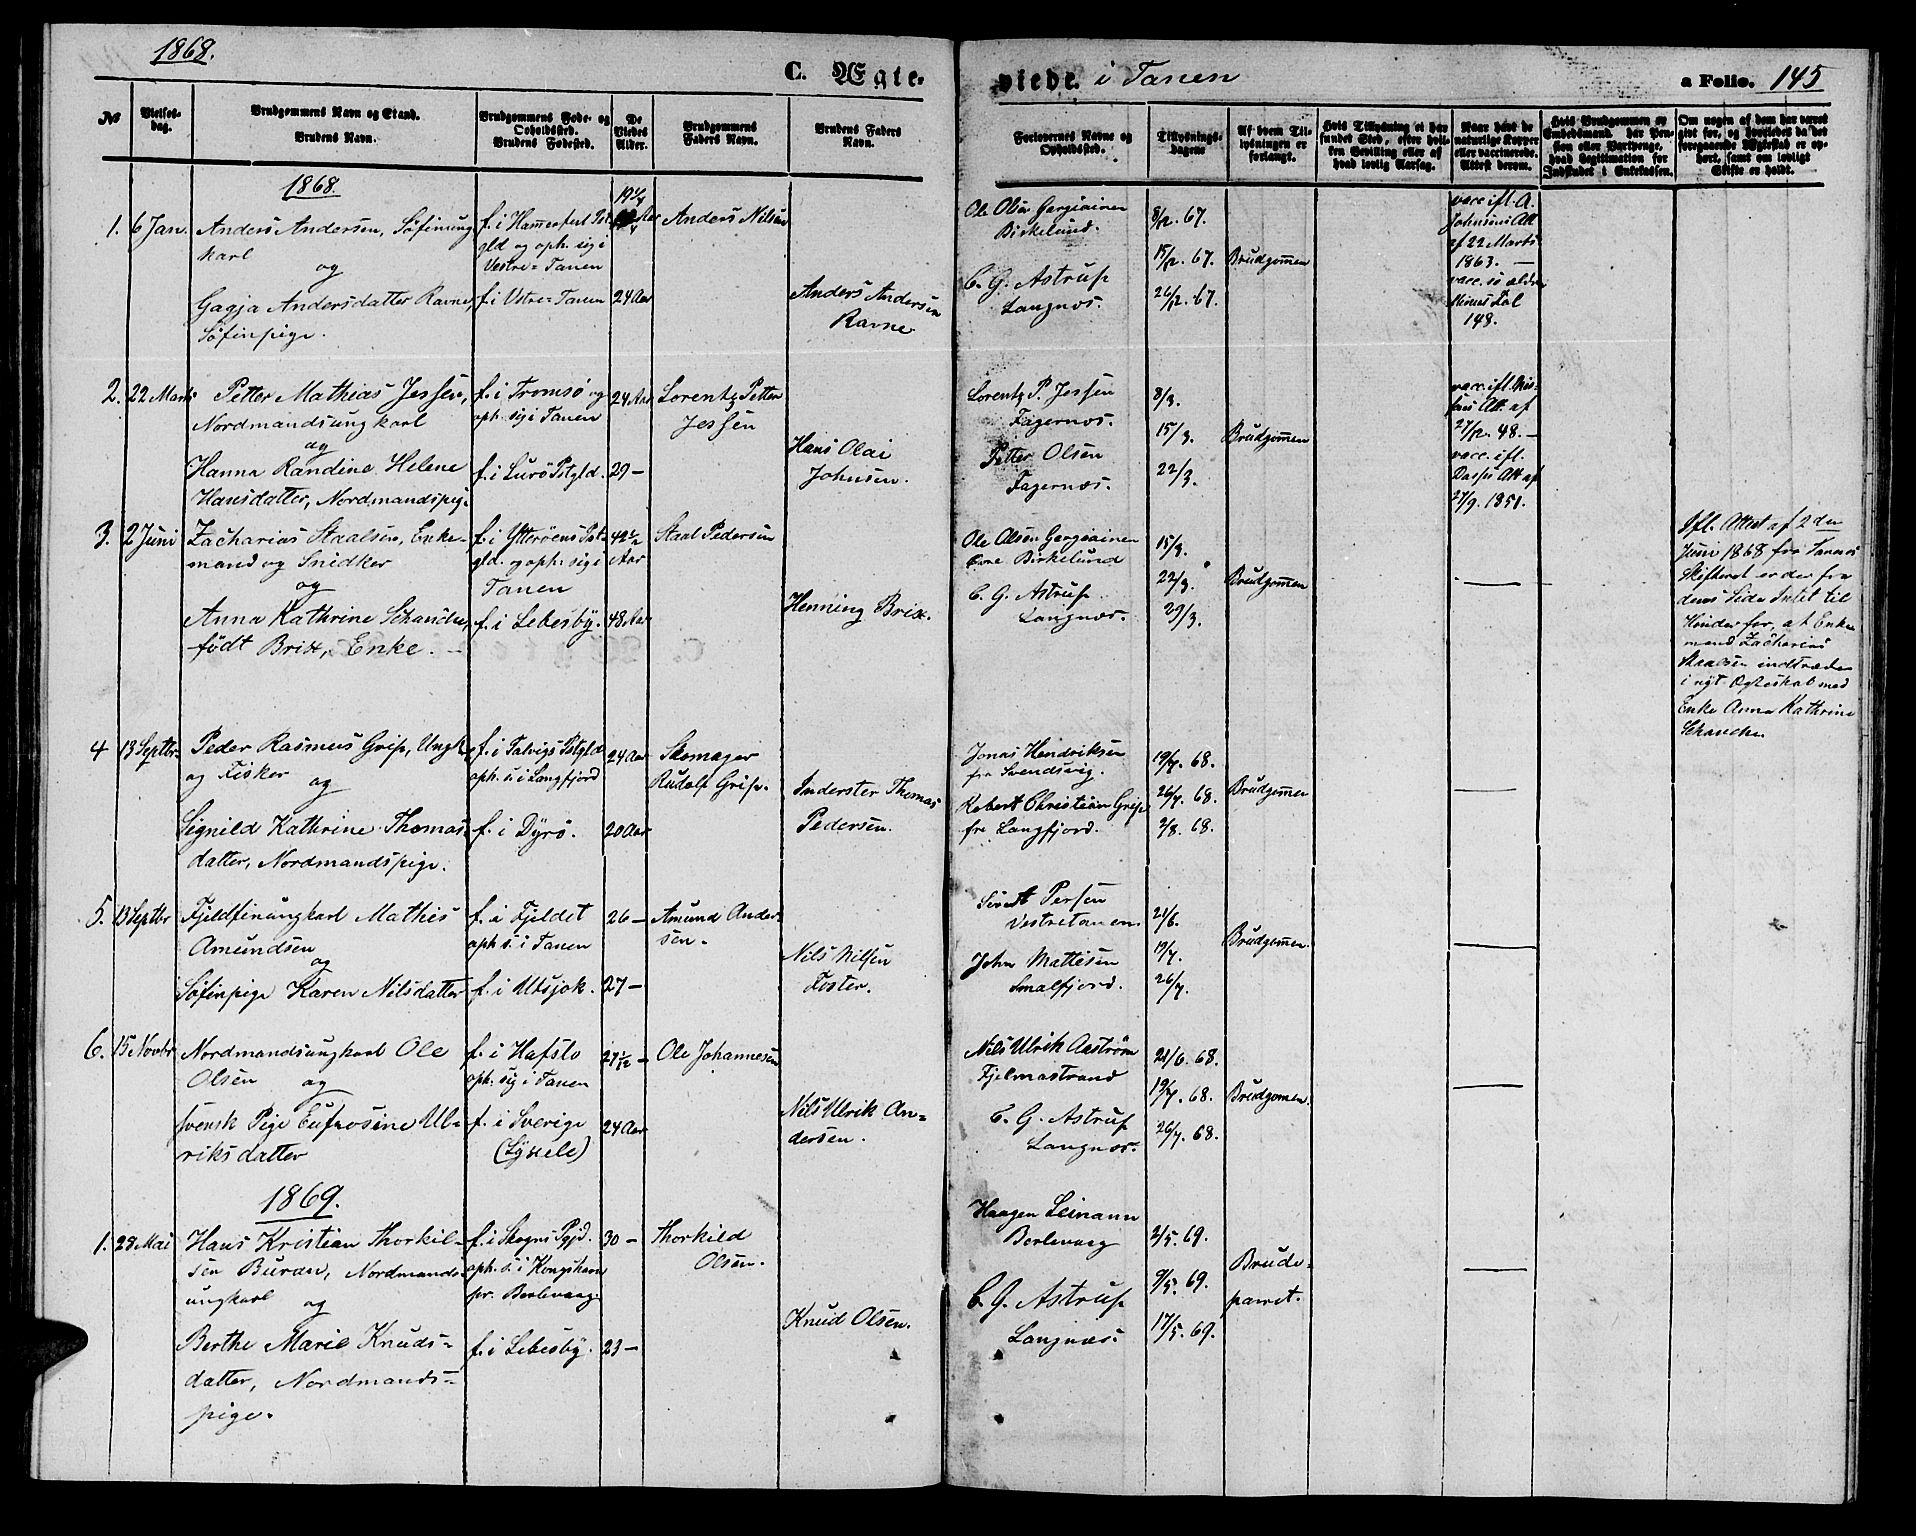 1868.
C. Ægte-
viede. i Tanen
a Folio. 145
No
Vielses-
dag.
Brudgommens Navn og Stand.
Brudens Navn.
Brudgommens Føde- og
Opholdssted.
Brudens Fødested.
De
Viedes
Alder.
Brudgommens
Faders Navn.
Brudens Faders
Navn.
Forlovernes Navne og
Opholdssted.
Tillysnings-
dagene
Af hvem Til-
lysningen er
forlangt.
Hvis Tillysning ei har
fundet Sted, efter hvil-
ken Bevilling eller af
hvad lovlig Aarsag.
Naar havt de
naturlige Kopper
eller vaccinerede.
Attest derom.
Hvis Brudgommen er
Embedsmand, har Pen-
sion eller Vartpenge,
hvad Legitimation for
Indskudet i Enkekassen.
Om nogen af dem har været
givt før, og hvorledes da det
foregaaende Ægteskab er op-
hørt, samt om lovligt
Skifte er holdt.
1868.
1. 6 Jan. Anders Andersen, Søfinung
karl
og
Gagja Andersdatter Ravne,
Søfinpige.
f. i Hamerfest Pst-
gld og oph. sig i
Vestre-Tanen
f. i Vstre-Tanen
19 1/4
Aar
24 Aar
Anders Nilsen
Anders Andersen
Ravne
Ole Olsen Gargiainen
Birkelund.
C. G. Astrup
Langnæs.
8/12. 67.
15/12. 67.
26/12. 67.
Brudgommen
vacc. ifl. A.
Johnsens Att
af 22 Marts
1863. —
vacc. s. ældre
Minist. Tal
148.
2. 22 Marts Petter Mathias Jessen,
Nordmandsungkarl
og
Hanna Randine Helene
Hansdatter, Nordmandspige.
f. i Tromsø og
oph. sig i Tanen
f. i Lurø Pstgld.
24 Aar
29 —
Lorentz Petter
Jessen
Hans Olai
Johnsen.
Lorentz P. Jessen
Fagernæs.
Petter Olsen
Fagernæs.
8/3.
15/3.
22/3.
Brudgommen
27/12. 48. —
vacc. ifl.
27/9. 1851.
3. 2 Juni Zacharias Staalsen, Enke-
mand og Snidker
og
Anna Kathrine Schanche,
født Brix, Enke. —
f. i Ytterøens Pst-
gld. og oph. sig i
Tanen
f. i Lebesby.
42 1/2
Aar
48 Aar
Staal Pedersen
Henning Brix.
Ole Olsen Gargiainen
Evne Birkelund
C. G. Astrup
Langnæs.
15/3.
22/3.
29/3.
Brudgommen
Ifl. Attest af 2den
Juni 1868 fra Tanens
Skifteret er der fra
dens Side Intet til
Hinder for, at Enke
mand Zacharias
Staalsen indtræder
i nyt Ægteskab med
Enke Anna Kathrine
Schanche.
4 13 Septbr. Peder Rasmus Grip, Ungk.
og Fisker
og
Signild Kathrine Thomas-
datter, Nordmandspige.
f. i Talvigs Pstgld
oph. s. i Langfjord
f. i Dyrø.
24 Aar
20 Aar
Skomager
Rudolf Grip.
Inderster Thomas
Pedersen.
Jonas Hendriksen
fra Svendsvig.
Robert Christian Grip
fra Langfjord.
19/7. 68.
26/7. 68.
2/8. 68.
Brudgommen
5. 13 Septbr Fjeldfinungkarl Mathis
Amundsen
og
Søfinpige Karen Nilsdatter
f. i Fjeldet
oph. s. i Tanen
f. i Utsjok.
26 —
27 —
Amund Ander-
sen.
Nils Nilsen
Foster.
Sivert Persen
Vestretanen
John Mattisen
Smalfjord.
21/6.
19/7.
26/7.
Brudgommen.
6. 15 Novbr Nordmandsungkarl Ole
Olsen
og
svensk Pige Eufrosine Ul-
riksdatter
f. i Hafslo
oph. sig i Tanen
f. i Sverige
(Lyxele)
27 1/12 —
24 Aar
Ole Johannesen
Nils Ulrik An-
dersen.
Nils Ulrik Aastrøm
Fjelmastrand
C. G. Astrup
Langnæs.
21/6. 68.
19/7. 68.
26/7. 68.
Brudgommen.
1869.
1. 28 Mai Hans Kristian Thorkil-
sen Buran, Nordmands-
ungkarl
og
Berthe Marie Knuds-
datter, Nordmands-
pige.
f. i Skogns Pgjd.
oph. s. i Kongshavn
pr. Berlevaag.
f. i Lebesby.
30 —
23 —
Thorkild
Olsen.
Knud Olsen.
Haagen Leinann
Berlevaag
C. G. Astrup
Langnæs.
2/5. 69.
9/5. 69.
17/5. 69.
Brude-
parret.